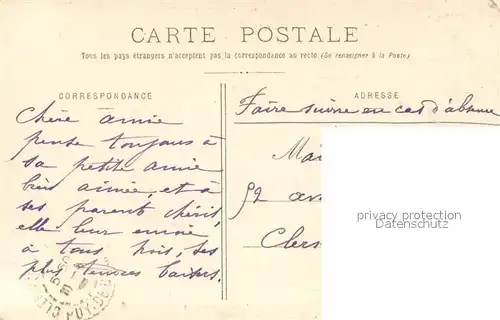 CARTE POSTALE
Tous les pays étrangers n'acceptent pas la correspondance au recto (Se renseigner à la Poste)
CORRESPONDANCE
ADRESSE
Faire suivre en cas d'absence
Chère amie
pense toujours à
sa petite amie
bien aimée, et à
ses parents chéris,
elle leur envoie
à tous trois, ses
plus tendres baisers.
92 av
Cler
privacy protection
Datenschutz
PUY-DE